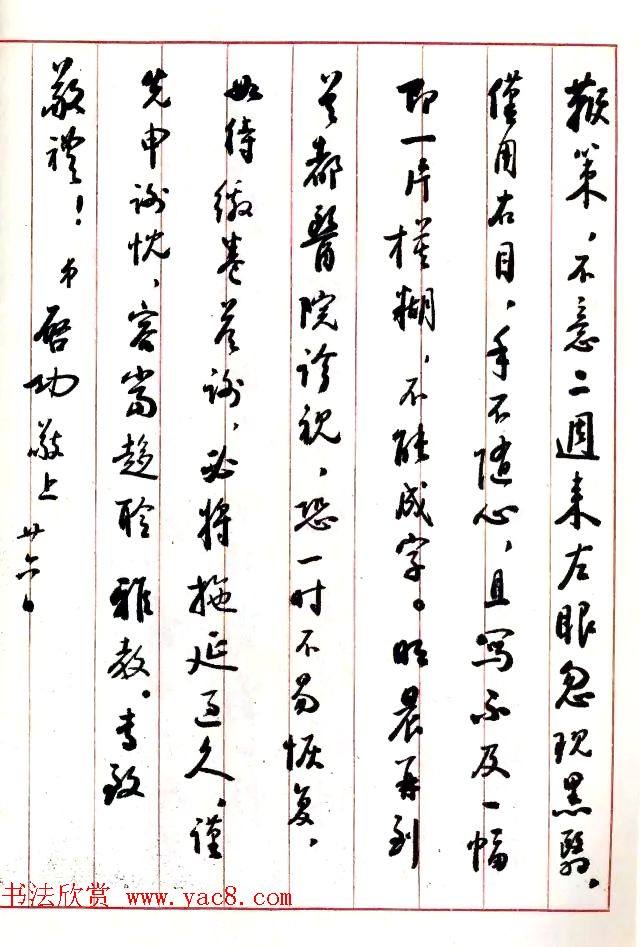 鞭策，不意二週来左眼忽現黑翳，
僅用右目，手不随心，且写不及一幅
即一片模糊，不能成字。昨晨再到
首都醫院诊视，恐一时不易恢复，
如待缴卷答谢，必将拖延过久，谨
先申谢忱，容当趋聆雅教。专致
敬禮！弟启功敬上 廿六日
书法欣赏 www.yac8.com